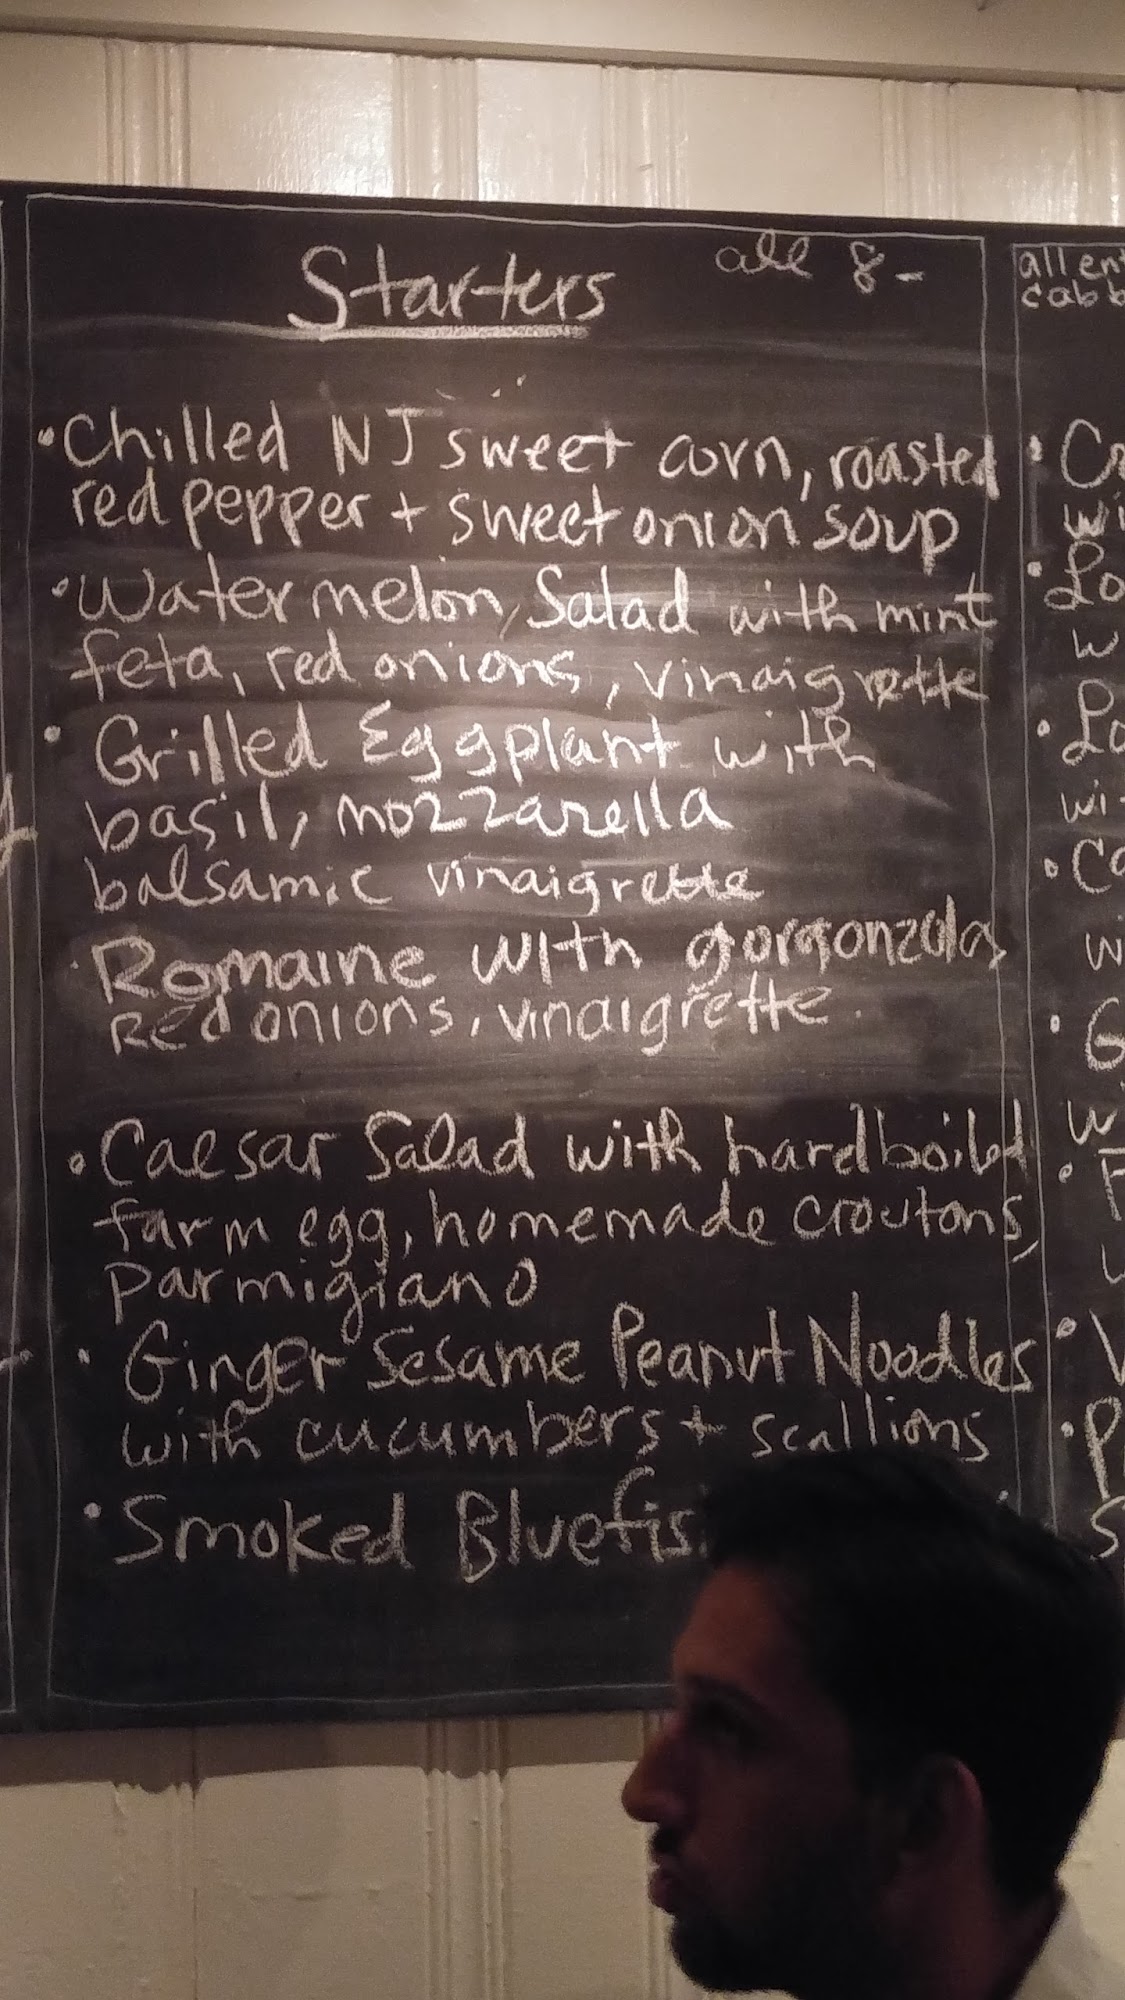 Starters
all 8-
•Chilled NJ sweet corn, roasted
red pepper + sweet onion soup
•Watermelon, Salad with mint
feta, red onions, vinaigrette
• Grilled Eggplant with
basil, mozzarella
balsamic vinaigrette
· Romaine with gorgonzola,
Red onions, vinaigrette.
• Caesar Salad with hardboiled
farm egg, homemade croutons,
parmigiano
• Ginger Sesame Peanut Noodles
with cucumbers + scallions
• Smoked Bluefis
all ent
cabb